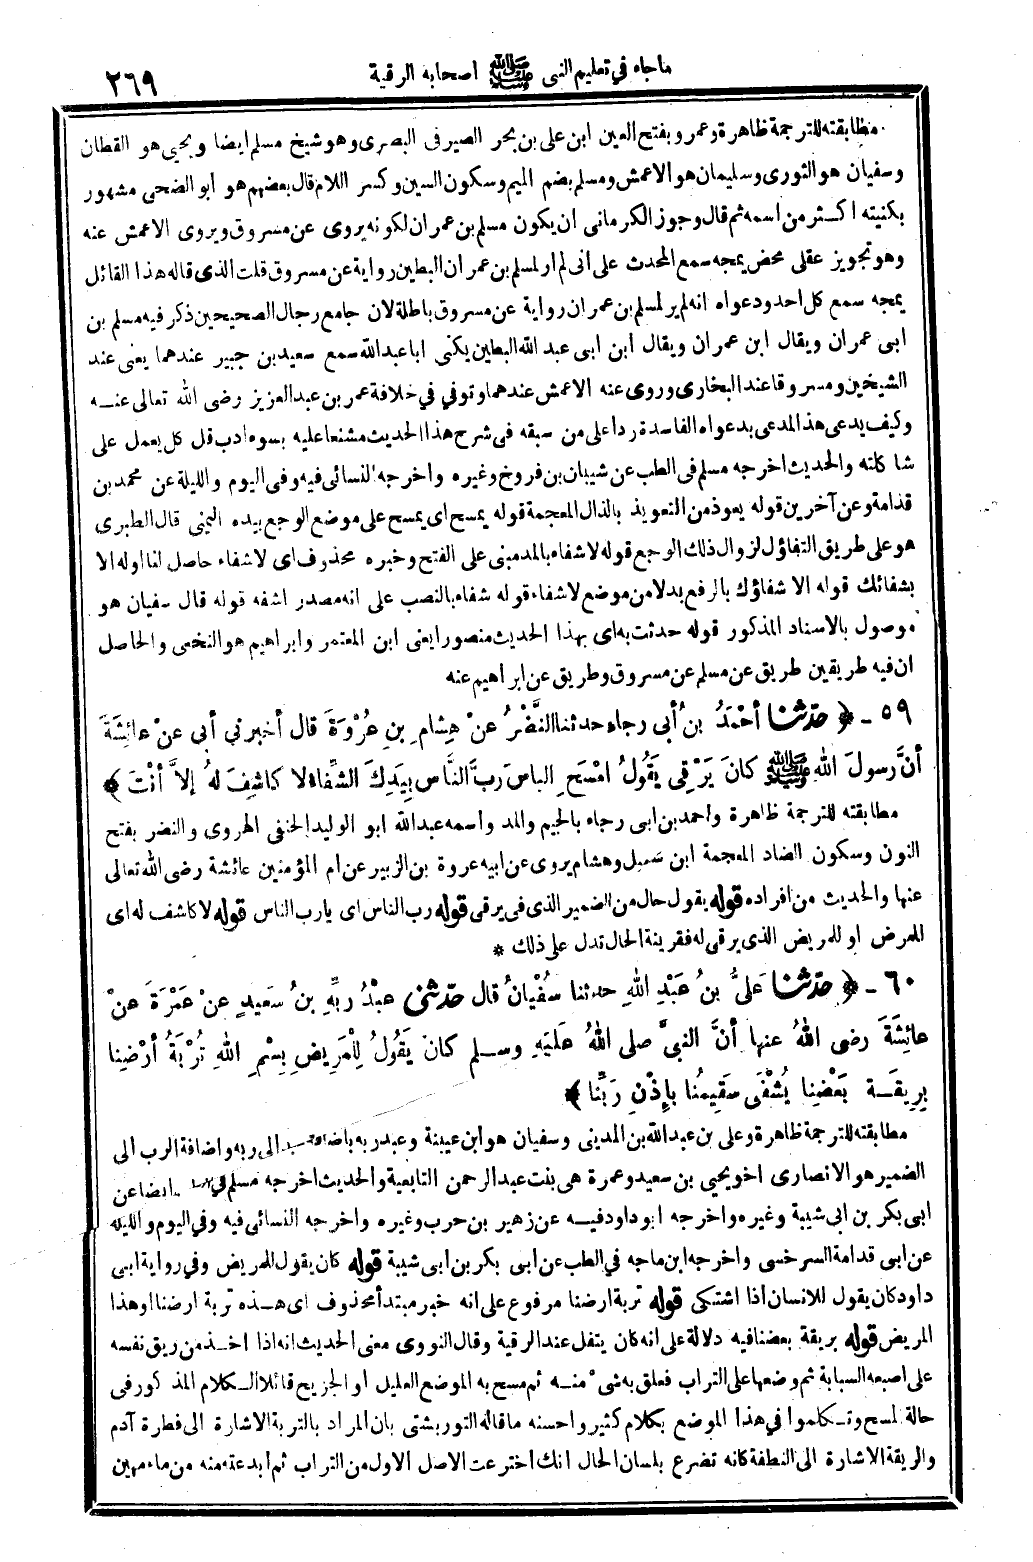 ماجاء في تعليم النبي ﷺ اصحابه الرقية
٢٦٩
مطابقته للترجمة ظاهرة وعمرو بفتح العين ابن على بن بحر الصيرفى البصرى وهو شيخ مسلم ايضا ويحيى هو القطان
وسفيان هو الثورى وسليمان هو الاعمش ومسلم بضم الميم وسكون السين وكسر اللام قال بعضهم هو ابو الضحى مشهور
بكنيته اكثر من اسمه ثم قال وجوز الكرمانى ان يكون مسلم بن عمران لكونه يروى عن مسروق ويروى الاعمش عنه
وهو تجويز عقلى محض يمجه سمع المحدث على انى لم ار لمسلم بن عمران البطين رواية عن مسروق قلت الذى قاله هذا القائل
يمجه سمع كل احد ودعواه انه لم ير لمسلم بن عمران رواية عن مسروق باطلة لان جامع رجال الصحيحين ذكر فيه مسلم بن
ابى عمران ويقال ابن عمران ويقال ابن ابى عبد الله البطين يكنى ابا عبدالله سمع سعيد بن جبير عندهما يعنى عند
الشيخين ومسروقا عند البخارى وروى عنه الاعمش عندهما وتوفي في خلافة عمر بن عبد العزيز رضى الله تعالى عنه
وكيف يدعى هذا المدعى بدعواه الفاسدة ردا على من سبقه فى شرح هذا الحديث مشنعا عليه بسوء ادب قل كل يعمل على
شاكلته والحديث اخرجه مسلم فى الطب عن شيبان بن فروخ وغيره واخرجه النسائى فيه وفى اليوم والليلة عن محمد بن
قدامة وعن آخرين قوله يعوذ من التعويذ بالذال المعجمة قوله يمسح اى يمسح على موضع الوجع بيده اليمنى قال الطبرى
هو على طريق التفاؤل لزوال ذلك الوجع قوله لا شفاء بالمد مبنى على الفتح وخبره محذوف اى لا شفاء حاصل لنا او له الا
بشفائك قوله الا شفاؤك بالرفع بدلا من موضع لا شفاء قوله شفاء بالنصب على انه مصدر اشفه قوله قال سفيان هو
موصول بالاسناد المذكور قوله حدثت به اى بهذا الحديث منصورا يعنى ابن المعتمر وابراهيم هو النخعى والحاصل
ان فيه طريقين طريق عن مسلم عن مسروق وطريق عن ابراهيم عنه
٥٩ - ﴿ حدثنا أحْمَدُ بنُ أبى رجاء حدثنا النَّضْرُ عنْ هِشامِ بنِ عُرْوَةَ قال أخبرني أبى عنْ عائِشَةَ
أنَّ رسولَ الله ﷺ كانَ يَرْقِى يَقُولُ امْسَحِ الباسَ رَبَّ النَّاسِ بِيَدِكَ الشِّفَاءُ لا كاشِفَ لهُ إلاَّ أنْتَ ﴾
مطابقته للترجمة ظاهرة واحمد بن ابى رجاء بالجيم والمد واسمه عبد الله ابو الوليد الحنفى الهروى والنضر بفتح
النون وسكون الضاد المعجمة ابن شميل وهشام يروى عن ابيه عروة بن الزبير عن ام المؤمنين عائشة رضى الله تعالى
عنها والحديث من افراده قوله يقول حال من الضمير الذى فى يرقى قوله رب الناس اى يارب الناس قوله لا كاشف له اى
للمرض او للمريض الذى يرقى له فقرينة الحال تدل على ذلك *
٦٠ - ﴿ حدثنا عَلِىُّ بنُ عَبْدِ اللهِ حدثنا سُفْيانُ قال حدثنى عبْدُ رَبِّهِ بنُ سَعِيدٍ عنْ عَمْرَةَ عنْ
عائِشَةَ رضى اللهُ عنها أنَّ النبىَّ صلى اللهُ عَلَيهِ وسلم كانَ يَقُولُ لِلْمَرِيضِ بِسْمِ اللهِ تُرْبَةُ أرْضِنا
بِرِيقَةِ بَعْضِنا يُشْفَى سَقِيمُنا بإِذْنِ رَبِّنا ﴾
مطابقته للترجمة ظاهرة وعلى بن عبد الله بن المدينى وسفيان هو ابن عيينة وعبد ربه باضافة الى ربه واضافة الرب الى
الضمير هو الانصارى اخو يحيى بن سعيد وعمرة هى بنت عبد الرحمن التابعية والحديث اخرجه مسلم في ايضا عن
ابى بكر بن ابى شيبة وغيره واخرجه ابو داود فيه عن زهير بن حرب وغيره واخرجه النسائى فيه وفي اليوم والليلة
عن ابى قدامة السرخسى واخرجه ابن ماجه في الطب عن ابى بكر بن ابى شيبة قوله كان يقول للمريض وفي رواية ابى
داود كان يقول للانسان اذا اشتكى قوله تربة ارضنا مرفوع على انه خبر مبتدأ محذوف اى هذه تربة ارضنا او هذا
المريض قوله بريقة بعضنا فيه دلالة على انه كان يتفل عند الرقية وقال النووى معنى الحديث انه اذا اخذ من ريق نفسه
على اصبعه السبابة ثم وضعها على التراب فعلق به شىء منه ثم مسح به الموضع العليل او الجريح قائلا الكلام المذكور فى
حالة المسح وتكلموا في هذا الموضع بكلام كثير واحسنه ما قاله التوربشتى بان المراد بالتربة الاشارة الى فطرة آدم
والريقة الاشارة الى النطفة كانه تضرع بلسان الحال انك اخترعت الاصل الاول من التراب ثم ابدعته منه من ماء مهين